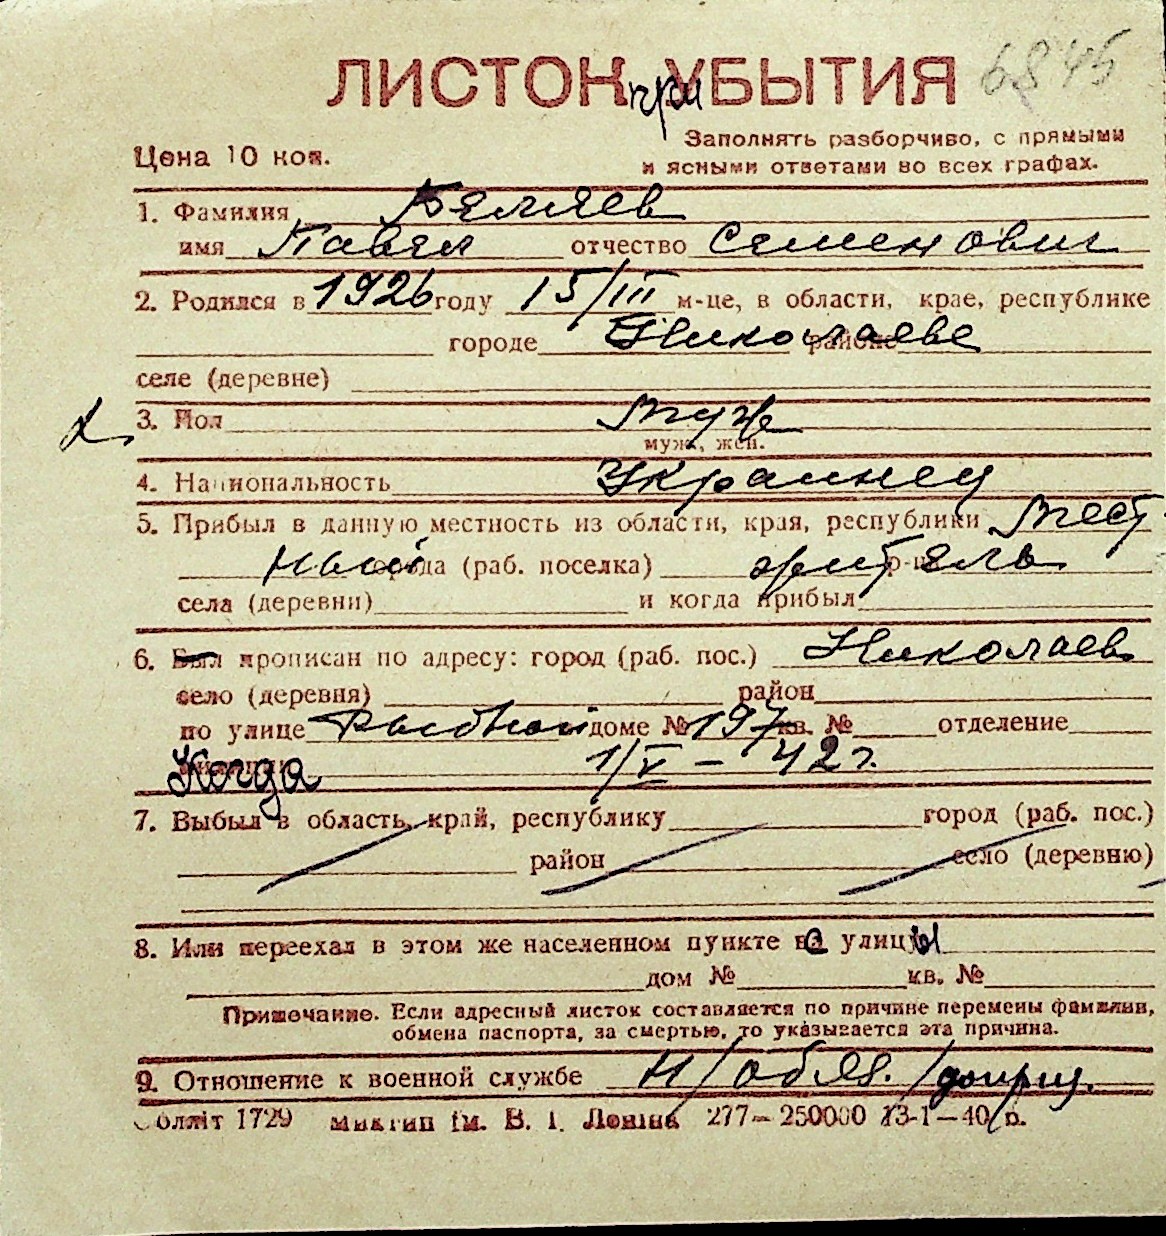 6845
ЛИСТОК при УБЫТИЯ
Цена 10 коп.
Заполнять разборчиво, с прямыми
и ясными ответами во всех графах.
1. Фамилия Беляев
имя Павел отчество Семенович
2. Родился в 1926 году 15/III м-це, в области, крае, республике
городе Николаеве районе
селе (деревне)
3. Пол муж
муж., жен.
4. Национальность Украинец
5. Прибыл в данную местность из области, края, республики Мест-
ный города (раб. поселка) житель р-на
села (деревни) и когда прибыл
6. Был прописан по адресу: город (раб. пос.) Николаев
село (деревня) район
по улице Рыбной доме № 197 кв. № отделение
Когда 1/V – 42 г.
7. Выбыл в область, край, республику город (раб. пос.)
район село (деревню)
8. Или переехал в этом же населенном пункте с улицы
дом № кв. №
Примечание. Если адресный листок составляется по причине перемены фамилии,
обмена паспорта, за смертью, то указывается эта причина.
9. Отношение к военной службе н/обяз. /допри.
Облліт 1729 ім. В. І. Леніна 277–250000 13-1–40 р.